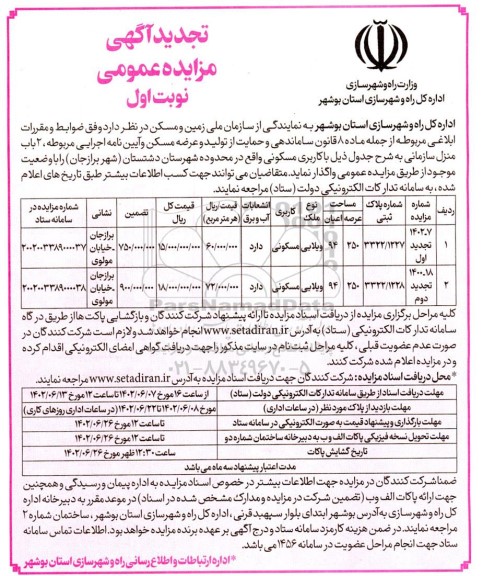 تجدید آگهی
مزایده عمومی
نوبت اول
وزارت راه و شهرسازی
اداره کل راه و شهرسازی استان بوشهر
اداره کل راه و شهرسازی استان بوشهر به نمایندگی از سازمان ملی زمین و مسکن در نظر دارد وفق ضوابط و مقررات
ابلاغی مربوطه از جمله ماده ۸ قانون ساماندهی و حمایت از تولید و عرضه مسکن و آیین نامه اجرایی مربوطه، ۲ باب
منزل سازمانی به شرح جدول ذیل با کاربری مسکونی واقع در محدوده شهرستان دشتستان (شهر برازجان) را با وضعیت
موجود از طریق مزایده عمومی واگذار نماید. متقاضیان می توانند جهت کسب اطلاعات بیشتر طبق تاریخ های اعلام
شده، به سامانه تدارکات الکترونیکی دولت (ستاد) مراجعه نمایند.
ردیف | شماره مزایده | شماره پلاک ثبتی | مساحت عرصه | اعیان | نوع ملک | کاربری | انشعابات آب و برق | قیمت/ریال (هر متر مربع) | قیمت کل ریال | تضمین | نشانی | شماره مزایده در سامانه ستاد
۱ | ۱۴۰۲.۷ تجدید اول | ۳۳۲۲/۱۲۲۷ | ۲۵۰ | ۹۴ | ویلایی | مسکونی | دارد | ۶۰/۰۰۰/۰۰۰ | ۱۵/۰۰۰/۰۰۰/۰۰۰ | ۷۵۰/۰۰۰/۰۰۰ | برازجان -خیابان مولوی | ۲۰۰۲۰۰۳۳۸۹۰۰۰۰۳۷
۲ | ۱۴۰۰.۱۸ تجدید دوم | ۳۳۲۲/۱۲۲۸ | ۲۵۰ | ۹۴ | ویلایی | مسکونی | دارد | ۷۲/۰۰۰/۰۰۰ | ۱۸/۰۰۰/۰۰۰/۰۰۰ | ۹۰۰/۰۰۰/۰۰۰ | برازجان -خیابان مولوی | ۲۰۰۲۰۰۳۳۸۹۰۰۰۰۳۸
کلیه مراحل برگزاری مزایده از دریافت اسناد مزایده تا ارائه پیشنهاد شرکت کنندگان و بازگشایی پاکت ها از طریق درگاه
سامانه تدارکات الکترونیکی (ستاد) به آدرس www.setadiran.ir انجام خواهد شد و لازم است شرکت کنندگان در
صورت عدم عضویت قبلی، کلیه مراحل ثبت نام در سایت مذکور را جهت دریافت گواهی امضای الکترونیکی اقدام کرده
و در مزایده اعلام شده شرکت کنند.
*محل دریافت اسناد مزایده: شرکت کنندگان جهت دریافت اسناد مزایده به آدرس www.setadiran.ir مراجعه نمایند.
مهلت دریافت اسناد از طریق سامانه تدارکات الکترونیکی دولت (ستاد) | از ساعت ۱۶ مورخ ۱۴۰۲/۰۶/۰۷ تا ساعت ۱۲ مورخ ۱۴۰۲/۰۶/۱۳
مهلت بازدید از پلاک مورد نظر (در ساعات اداری) | مورخ ۱۴۰۲/۰۶/۰۸ تا ۱۴۰۲/۰۶/۲۳ (در ساعات اداری روزهای کاری)
مهلت بارگذاری و پیشنهاد قیمت به صورت الکترونیکی در سامانه ستاد | تا ساعت ۱۲ مورخ ۱۴۰۲/۰۶/۲۶
مهلت تحویل نسخه فیزیکی پاکات الف و ب به دبیرخانه ساختمان شماره دو | تا ساعت ۱۲ مورخ ۱۴۰۲/۰۶/۲۶
تاریخ گشایش پاکات | ساعت ۱۲:۳۰ ظهر مورخ ۱۴۰۲/۰۶/۲۶
مدت اعتبار پیشنهاد سه ماه می باشد
ضمنا شرکت کنندگان در مزایده جهت اطلاعات بیشتر در خصوص اسناد مزایده به اداره پیمان و رسیدگی و همچنین
جهت ارائه پاکات الف و ب (تضمین شرکت در مزایده و مدارک مشخص شده در اسناد) در موعد مقرر به دبیرخانه اداره
کل راه و شهرسازی به آدرس بوشهر ابتدای بلوار سپهبد قرنی، اداره کل راه و شهرسازی استان بوشهر، ساختمان شماره ۲
مراجعه نمایند. در ضمن هزینه کارمزد سامانه ستاد و درج آگهی بر عهده برنده مزایده خواهد بود. اطلاعات تماس سامانه
ستاد جهت انجام مراحل عضویت در سامانه ۱۴۵۶ می باشد.
*اداره ارتباطات و اطلاع رسانی راه و شهرسازی استان بوشهر
ParsNamadData
۰۲۱-۸۸۳۴۹۶۷۰-۵